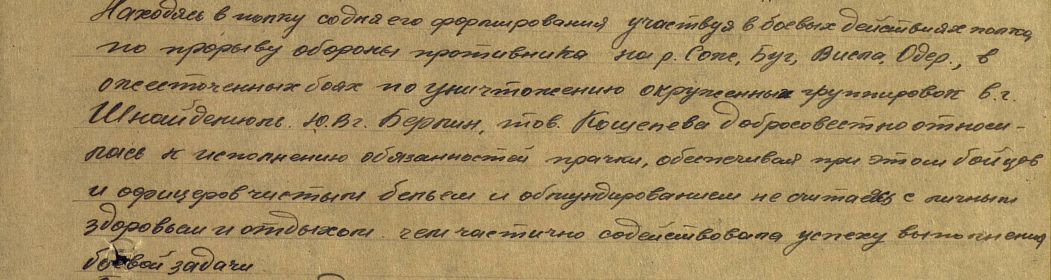 Находясь в полку со дня его формирования участвуя в боевых действиях полка
по прорыву обороны противника на р. Сож, Буг, Висла, Одер., в
ожесточенных боях по уничтожению окруженных группировок в.г.
Шнайдемюль. Ю.В г. Берлин, тов. Кощепева добросовестно относи-
лась к исполнению обязанностей прачки, обеспечивая при этом бойцов
и офицеров чистым бельем и обмундированием не считаясь с личным
здоровьем и отдыхом. чем частично содействовала успеху выполнения
боевой задачи